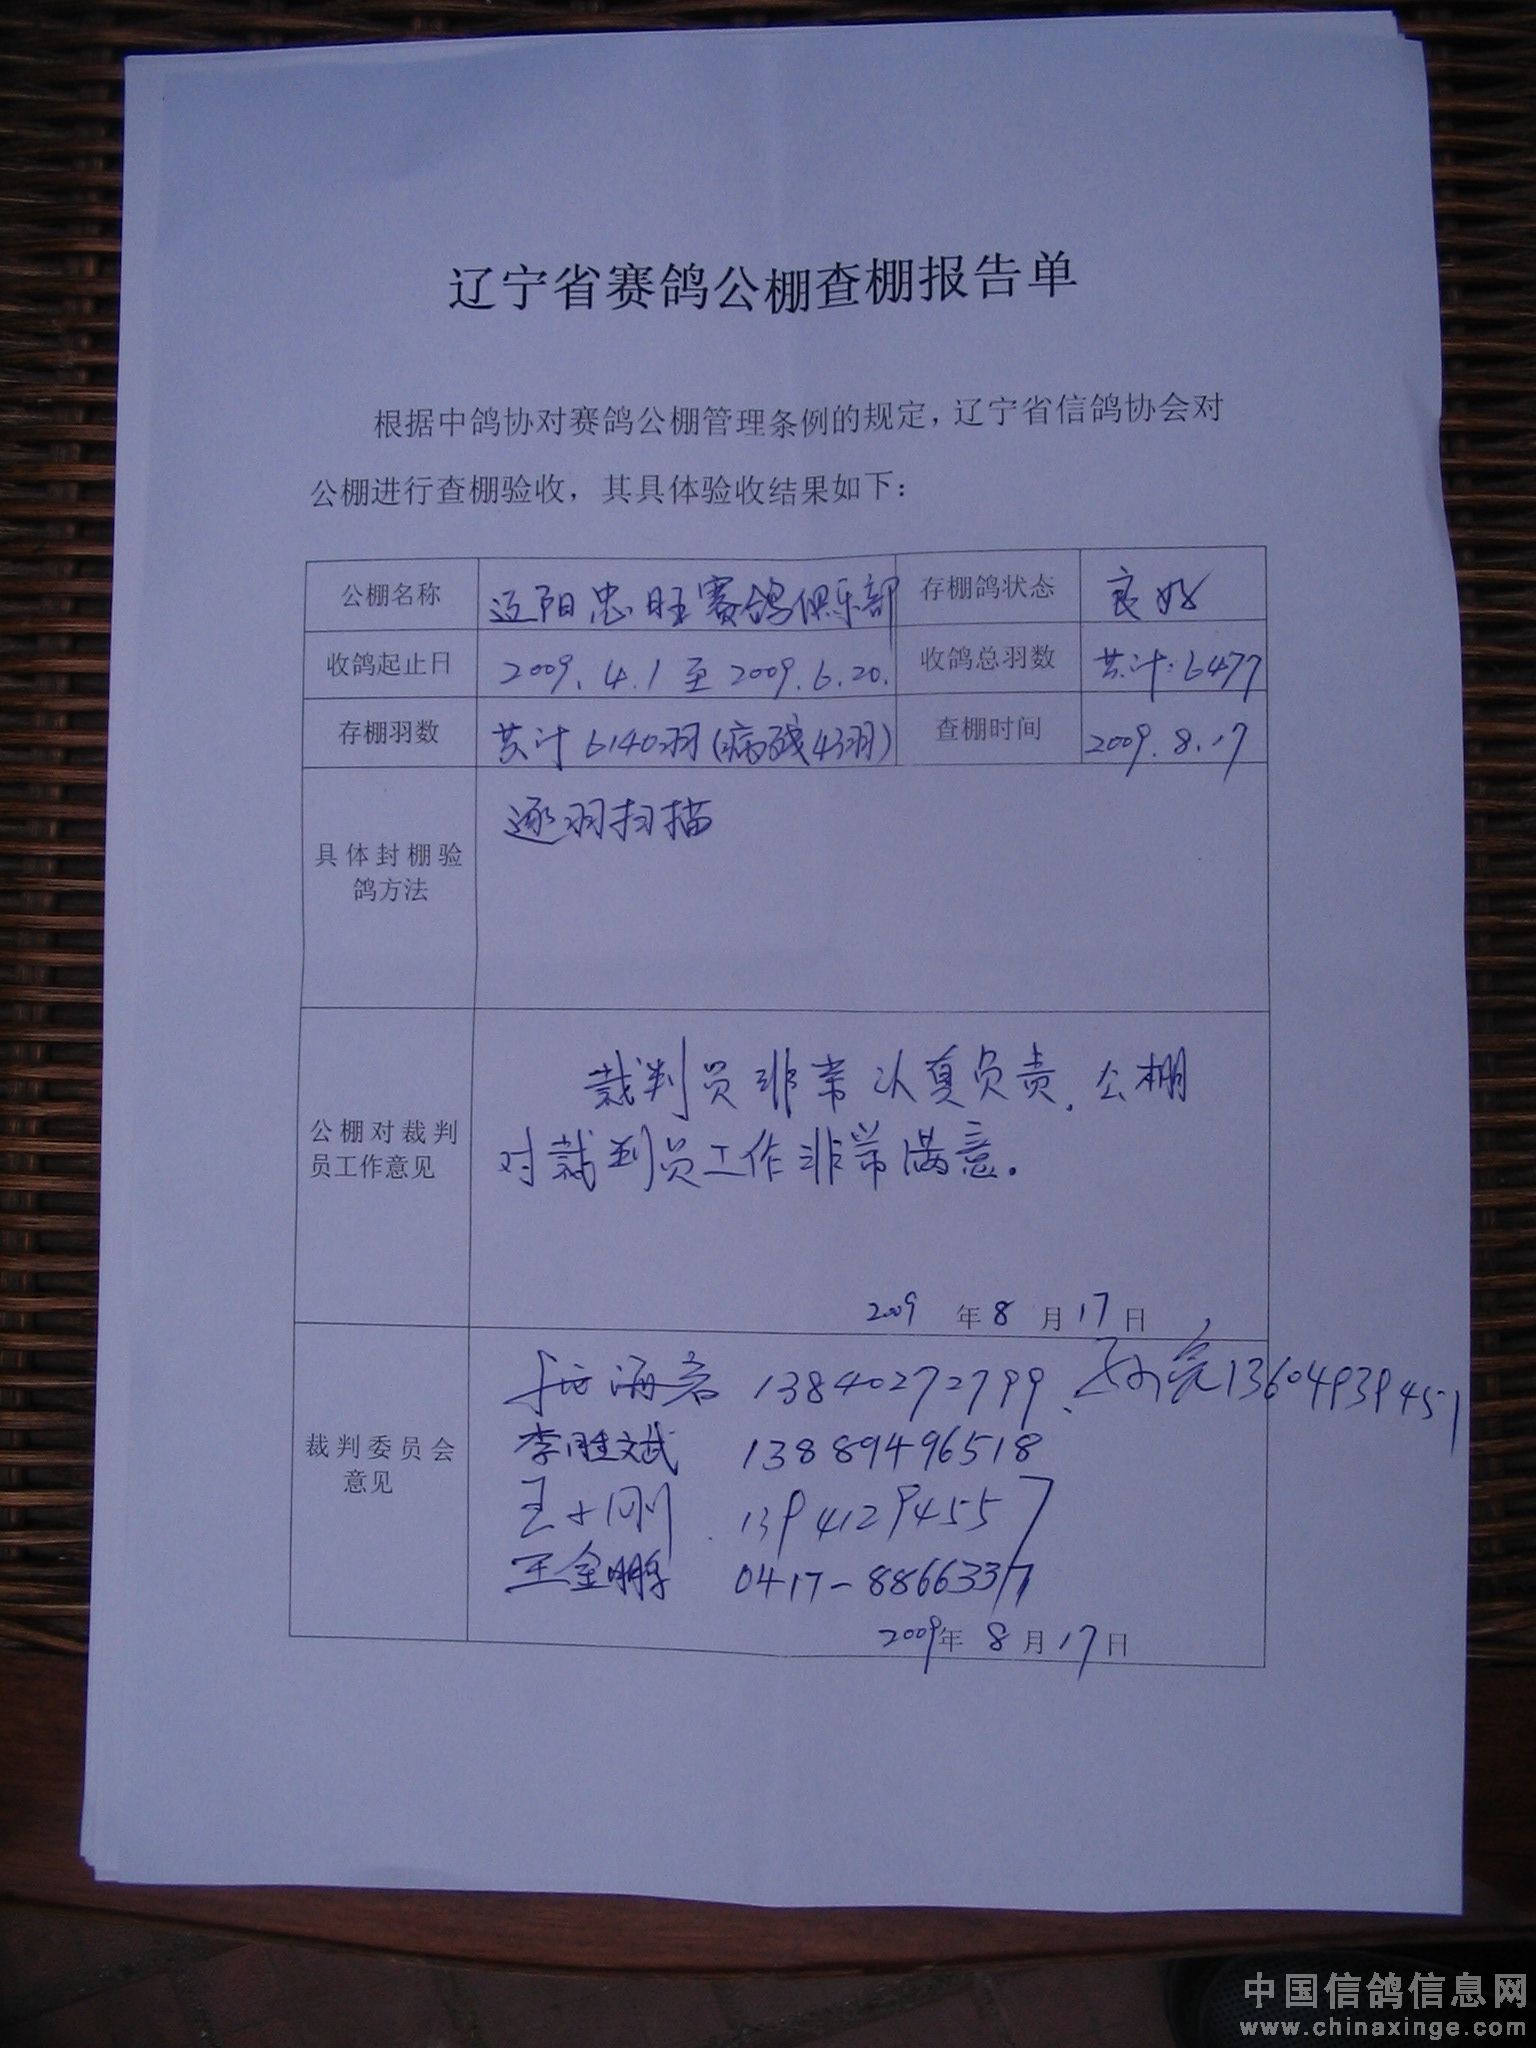 辽宁省赛鸽公棚查棚报告单
根据中鸽协对赛鸽公棚管理条例的规定，辽宁省信鸽协会对
公棚进行查棚验收，其具体验收结果如下：
公棚名称 辽阳忠旺赛鸽俱乐部 存棚鸽状态 良好
收鸽起止日 2009.4.1至2009.6.20. 收鸽总羽数 共计：6477
存棚羽数 共计6140羽(病残43羽) 查棚时间 2009.8.17
具体封棚验
鸽方法
逐羽扫描
公棚对裁判
员工作意见
裁判员非常认真负责，公棚
对裁判员工作非常满意。
2009年8月17日
裁判委员会
意见
海 13840272799、孙亮13604939451
李胜斌 13889496518
王 刚 13941294557
王金鹏 0417-8866337
2009年8月17日
中国信鸽信息网
www.chinaxinge.com